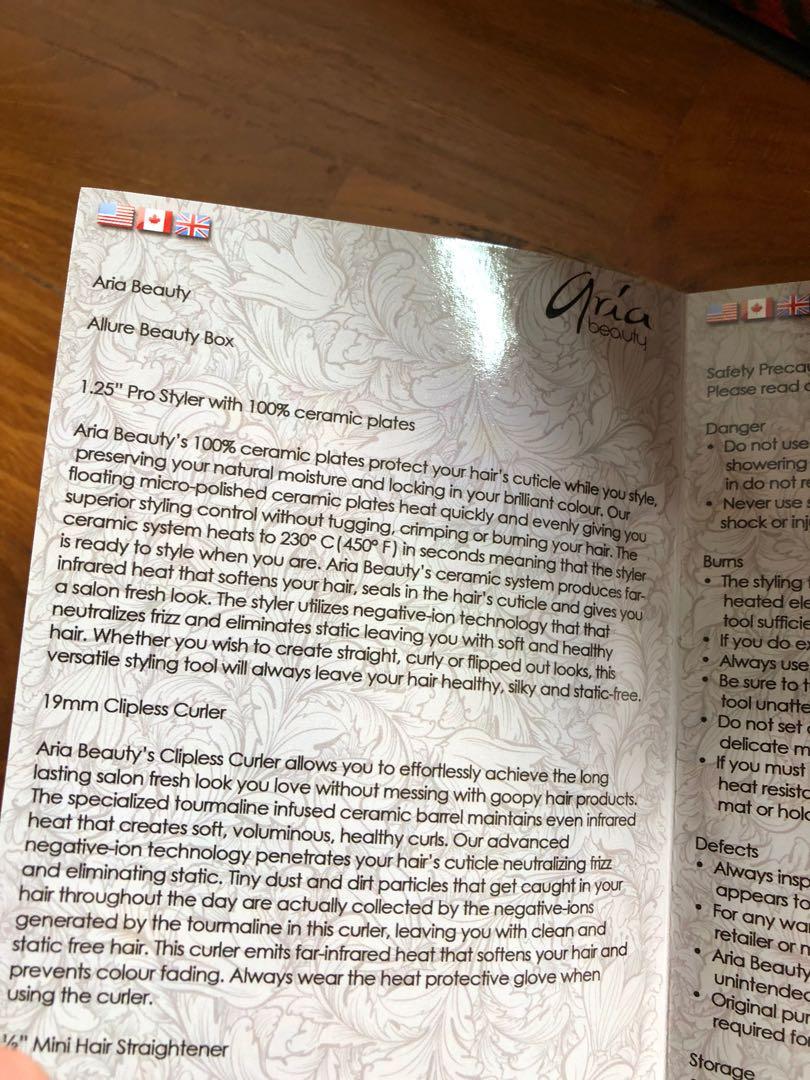 Aria Beauty
Allure Beauty Box
aria
beauty
1.25" Pro Styler with 100% ceramic plates
Aria Beauty's 100% ceramic plates protect your hair's cuticle while you style,
preserving your natural moisture and locking in your brilliant colour. Our
floating micro-polished ceramic plates heat quickly and evenly giving you
superior styling control without tugging, crimping or burning your hair. The
ceramic system heats to 230° C(450° F) in seconds meaning that the styler
is ready to style when you are. Aria Beauty's ceramic system produces far-
infrared heat that softens your hair, seals in the hair's cuticle and gives you
a salon fresh look. The styler utilizes negative-ion technology that that
neutralizes frizz and eliminates static leaving you with soft and healthy
hair. Whether you wish to create straight, curly or flipped out looks, this
versatile styling tool will always leave your hair healthy, silky and static-free.
19mm Clipless Curler
Aria Beauty's Clipless Curler allows you to effortlessly achieve the long
lasting salon fresh look you love without messing with goopy hair products.
The specialized tourmaline infused ceramic barrel maintains even infrared
heat that creates soft, voluminous, healthy curls. Our advanced
negative-ion technology penetrates your hair's cuticle neutralizing frizz
and eliminating static. Tiny dust and dirt particles that get caught in your
hair throughout the day are actually collected by the negative-ions
generated by the tourmaline in this curler, leaving you with clean and
static free hair. This curler emits far-infrared heat that softens your hair and
prevents colour fading. Always wear the heat protective glove when
using the curler.
½" Mini Hair Straightener
Safety
Please read
Danger
• Do not use
showering
in do not
• Never use
shock or
Burns
• The styling
heated
tool
• If you do
• Always use
• Be sure to
tool
• Do not set
delicate
• If you must
heat
mat or
Defects
• Always
appears to
• For any
retailer or
• Aria Beauty
unintended
• Original
required for
Storage